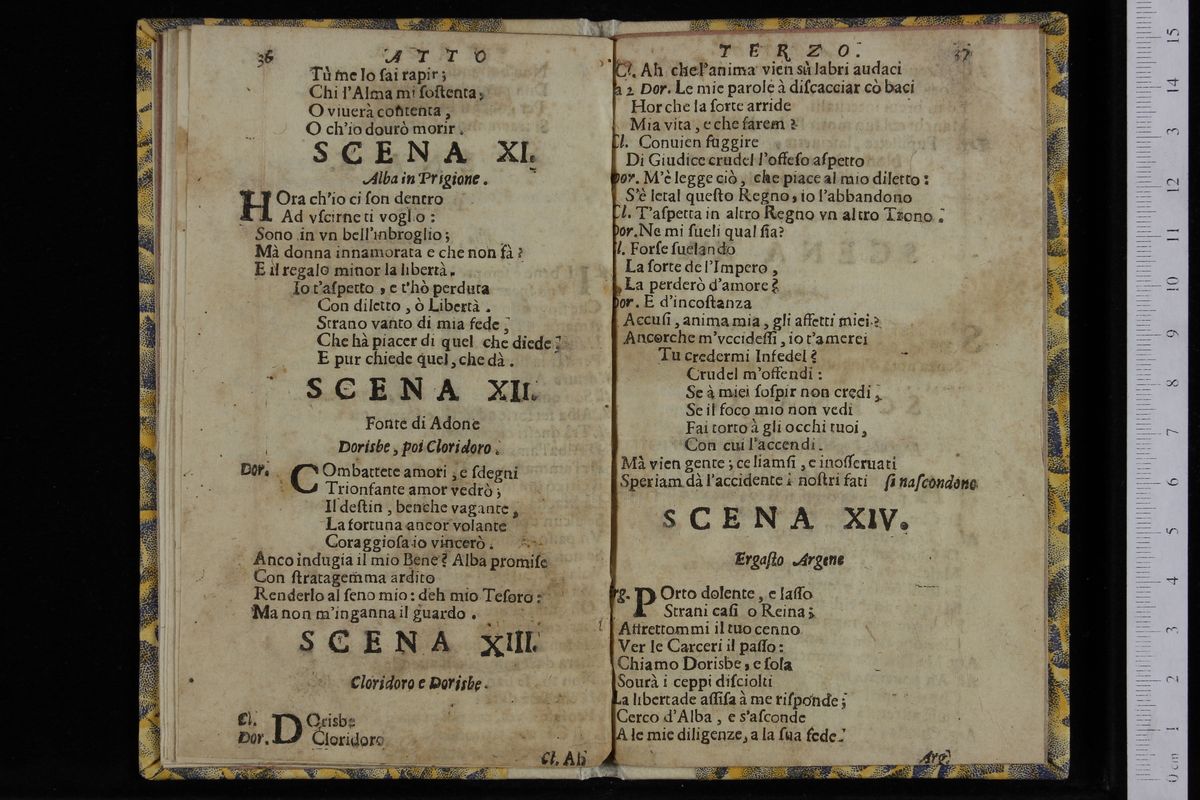 36 ATTO
Tù me lo fai rapir;
Chi l'Alma mi ſoſtenta,
O viuerà contenta,
O ch'io dourò morir.
SCENA XI.
Alba in Prigione.
HOra ch'io ci ſon dentro
Ad vſcirne ti voglio:
Sono in vn bell'inbroglio;
Mà donna innamorata e che non fà?
E il regalo minor la libertà.
Io t'aſpetto, e t'hò perduta
Con diletto, ò Libertà.
Strano vanto di mia fede,
Che hà piacer di quel che diede;
E pur chiede quel, che dà.
SCENA XII.
Fonte di Adone
Dorisbe, poi Cloridoro.
Dor. COmbattete amori, e ſdegni
Trionfante amor vedrò;
Il deſtin, benche vagante,
La fortuna ancor volante
Coraggioſa io vincerò.
Anco indugia il mio Bene? Alba promiſe
Con ſtratagemma ardito
Renderlo al ſeno mio: deh mio Teſoro:
Ma non m'inganna il guardo.
SCENA XIII.
Cloridoro e Dorisbe.
Cl. DOrisbe
Dor. Cloridoro
Cl. Ah
TERZO. 37
Cl. Ah che l'anima vien sù labri audaci
a 2 Dor. Le mie parole à diſcacciar cò baci
Hor che la ſorte arride
Mia vita, e che farem?
Cl. Conuien fuggire
Di Giudice crudel l'offeſo aſpetto
Dor. M'è legge ciò, che piace al mio diletto:
S'è letal queſto Regno, io l'abbandono
Cl. T'aſpetta in altro Regno vn altro Trono.
Dor. Ne mi ſueli qual ſia?
Cl. Forſe ſuelando
La ſorte de l'Impero,
La perderò d'amore?
Dor. E d'incoſtanza
Accuſi, anima mia, gli affetti miei?
Ancorche m'vccideſſi, io t'amerei
Tu credermi Infedel?
Crudel m'offendi:
Se à miei ſoſpir non credi,
Se il foco mio non vedi
Fai torto à gli occhi tuoi,
Con cui l'accendi.
Mà vien gente; ce liamſi, e inoſſeruati
Speriam dà l'accidente i noſtri fati ſi naſcondono
SCENA XIV.
Ergaſto Argene
rg. POrto dolente, e laſſo
Strani caſi o Reina;
Affrettommi il tuo cenno
Ver le Carceri il paſſo:
Chiamo Dorisbe, e ſola
Sourà i ceppi diſciolti
La libertade aſſiſa à me riſponde;
Cerco d'Alba, e s'aſconde
A le mie diligenze, a la ſua fede.
Arg
0 cm 1 2 3 4 5 6 7 8 9 10 11 12 13 14 15